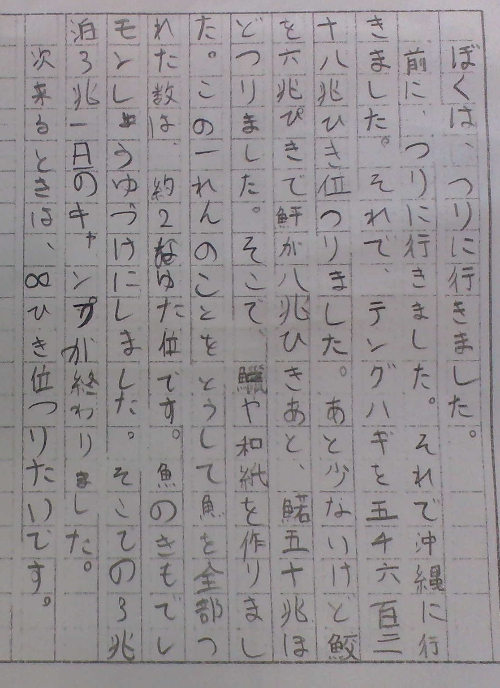 ぼくは、つりに行きました。
前に、つりに行きました。それで沖縄に行
きました。それで、テングハギを五千六百三
十八兆ひき位つりました。あと少ないけど鮫
を六兆ぴきで鮃が八兆ひきあと、鰙五十兆ほ
どつりました。そこで、や和紙を作りまし
た。この一れんのことをとうして魚を全部つ
れた数は、約2なゆた位です。魚のきもでレ
モンしょうゆづけにしました。そこでの3兆
泊3兆一日のキャンプが終わりました。
次来るときは、∞ひき位つりたいです。